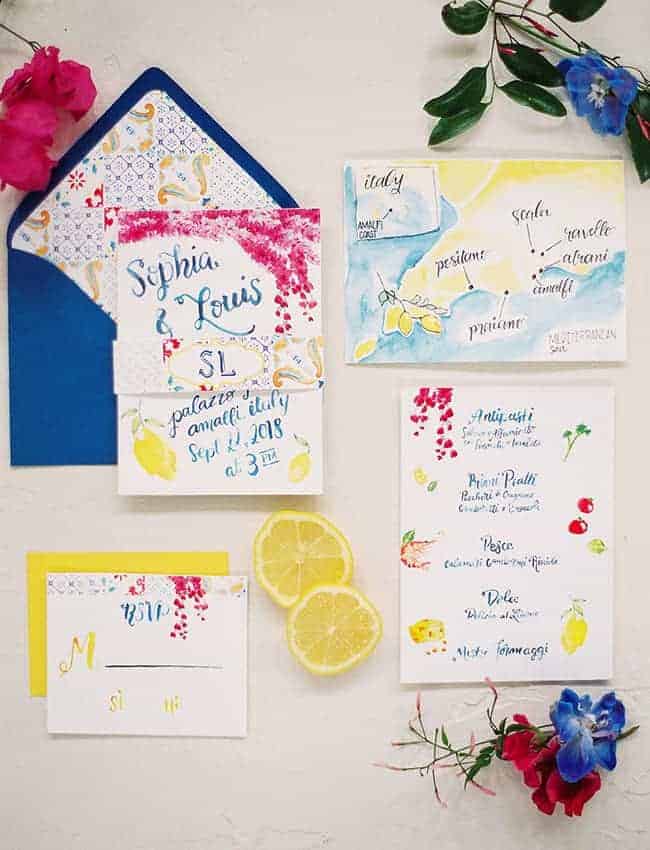 Sophia
& Louis
SL
palazzo
amalfi, italy
Sept 22, 2018
at 3 PM
italy
AMALFI
COAST
scala
ravello
atrani
amalfi
positano
praiano
MEDITERRANEAN
sea
Antipasti
Primi Piatti
Paccheri
Pesce
Calamari
Dolce
Delizia al Limone
Misto formaggi
RSVP
M
Sì